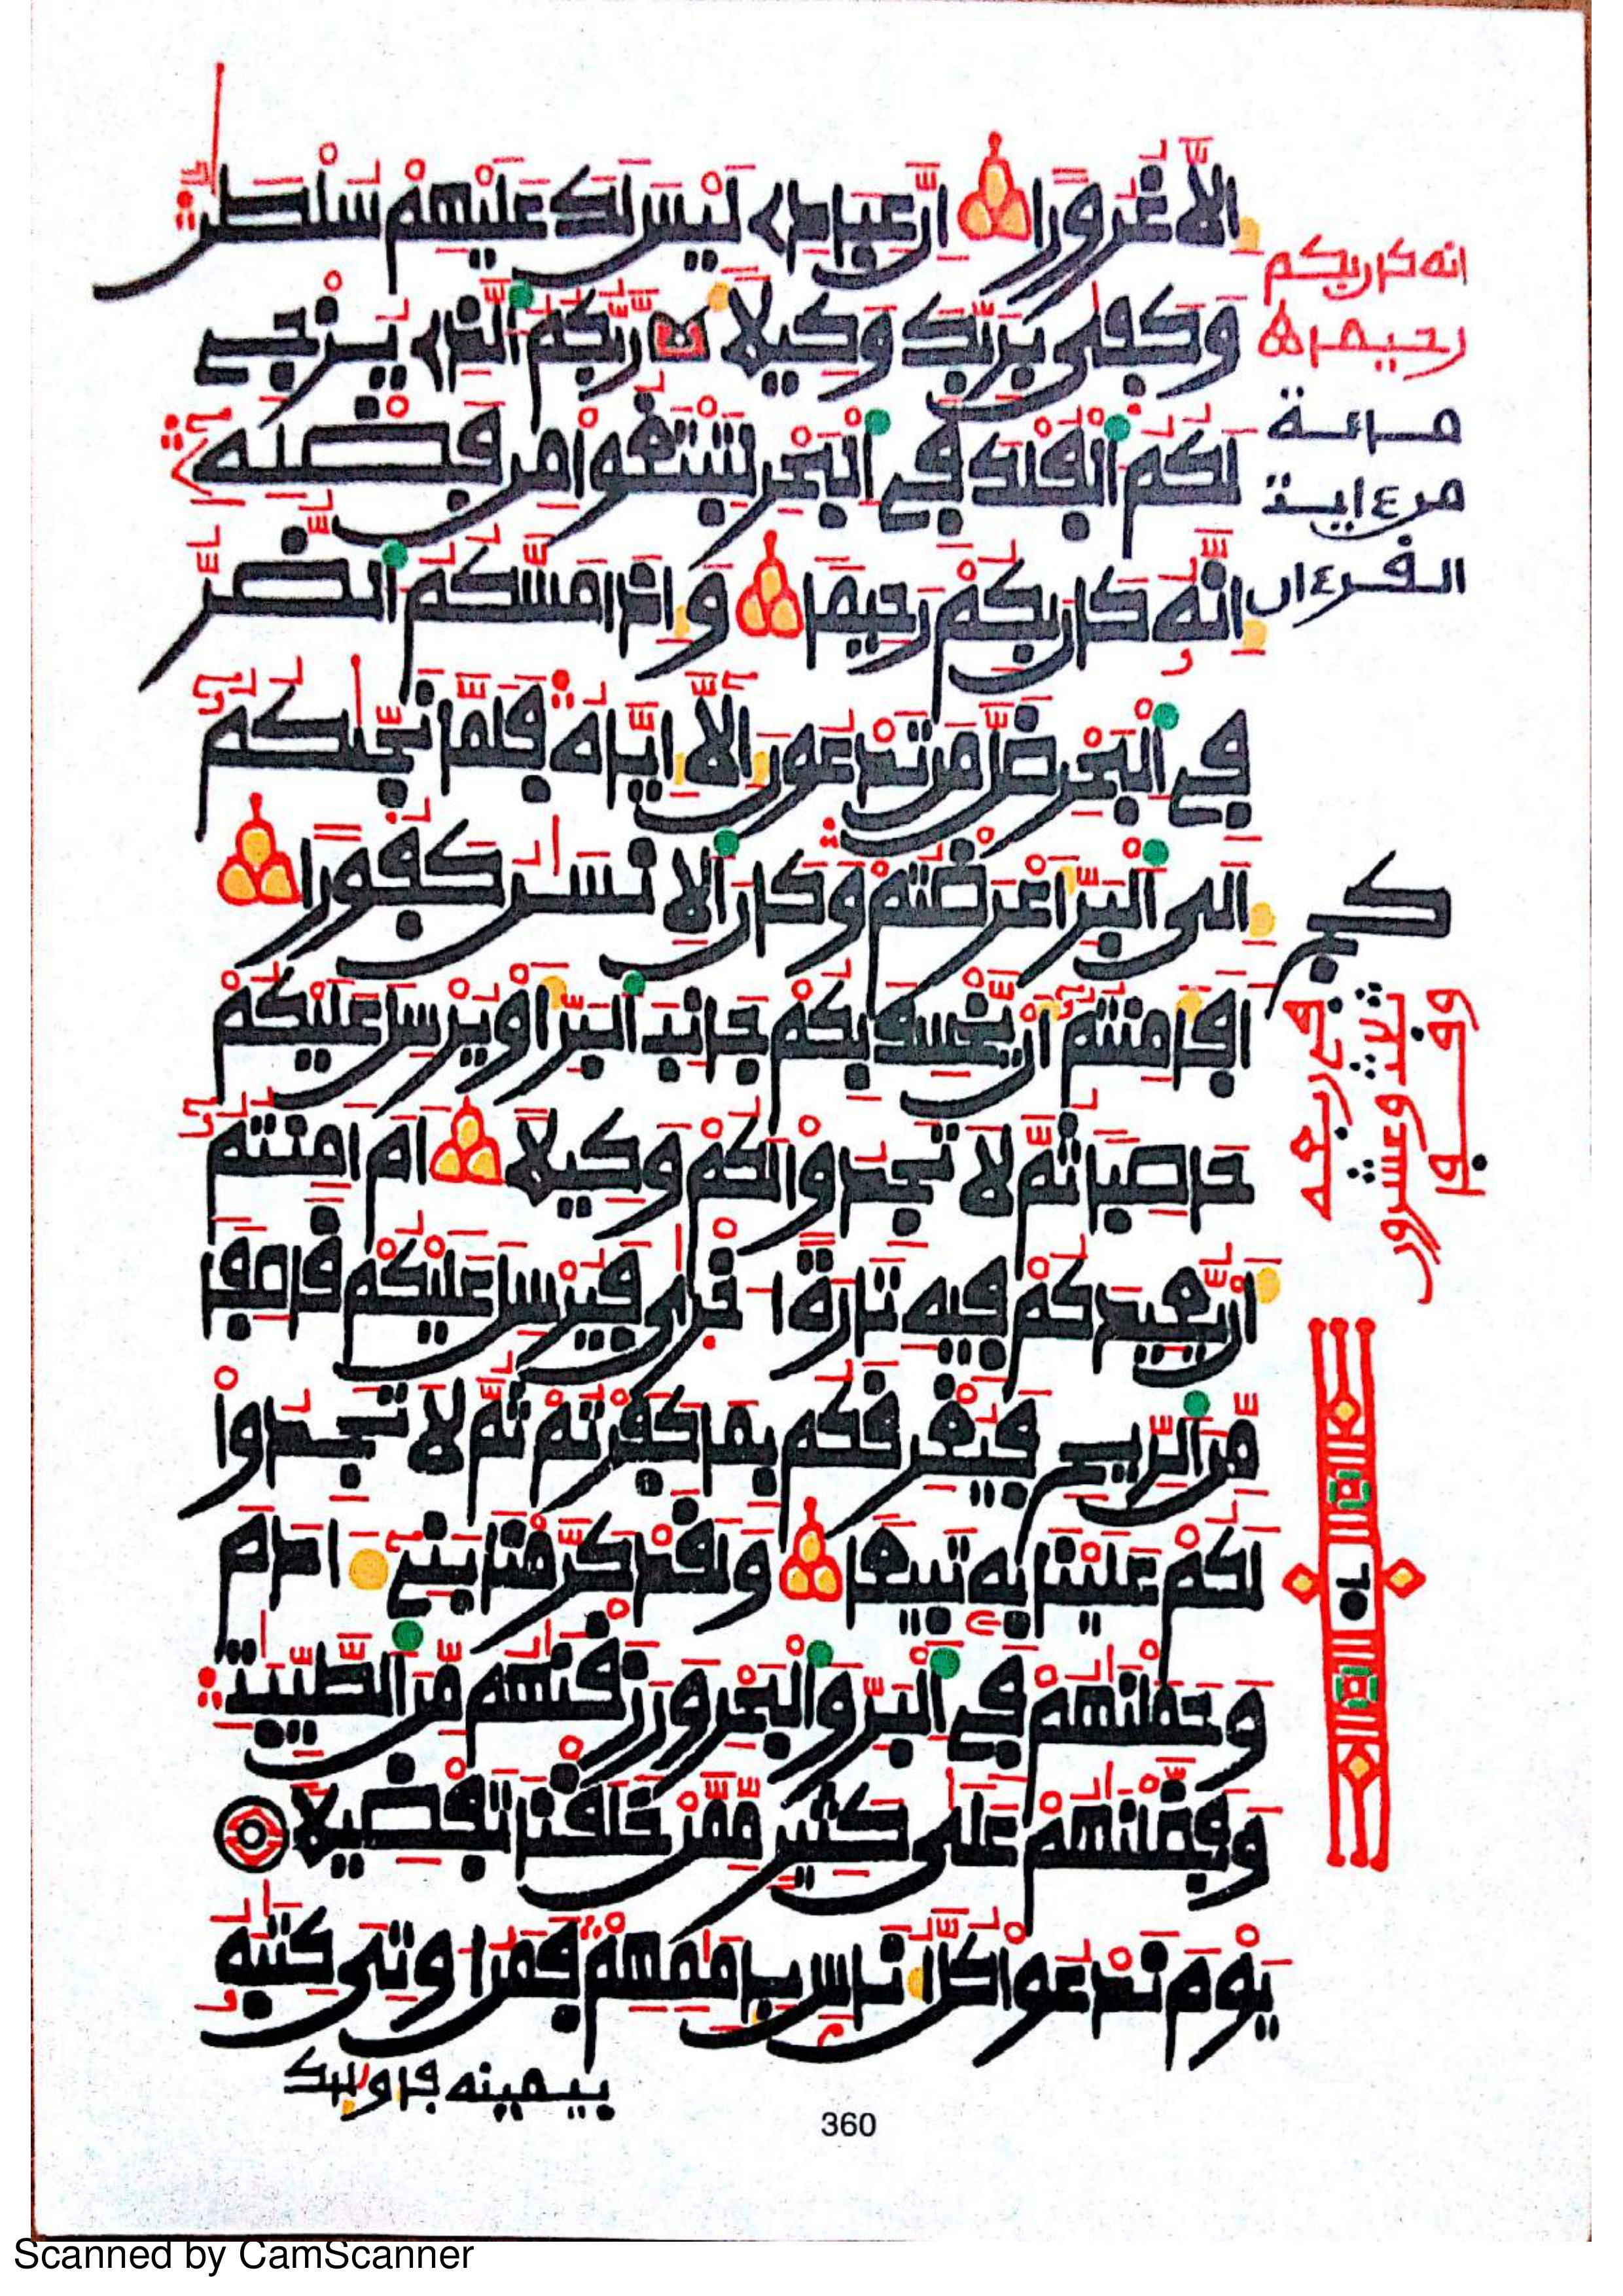 الا غرورا ان عبادي ليس لك عليهم سلطن
وكفى بربك وكيلا ربكم الذي يزجي
لكم الفلك في البحر لتبتغوا من فضله
انه كان بكم رحيما واذا مسكم الضر
في البحر ضل من تدعون الا اياه فلما نجىكم
الى البر اعرضتم وكان الانسن كفورا
افامنتم ان يخسف بكم جانب البر او يرسل عليكم
حاصبا ثم لا تجدوا لكم وكيلا ام امنتم
ان يعيدكم فيه تارة اخرى فيرسل عليكم قاصفا
من الريح فيغرقكم بما كفرتم ثم لا تجدوا
لكم علينا به تبيعا ولقد كرمنا بني ءادم
وحملنهم في البر والبحر ورزقنهم من الطيبت
وفضلنهم على كثير ممن خلقنا تفضيلا
يوم ندعوا كل اناس بامमهم فمن اوتي كتبه
بيمينه فاوليك
انه كان بكم
رحيما
ماىة
من ءاية
القرءان
360
Scanned by CamScanner